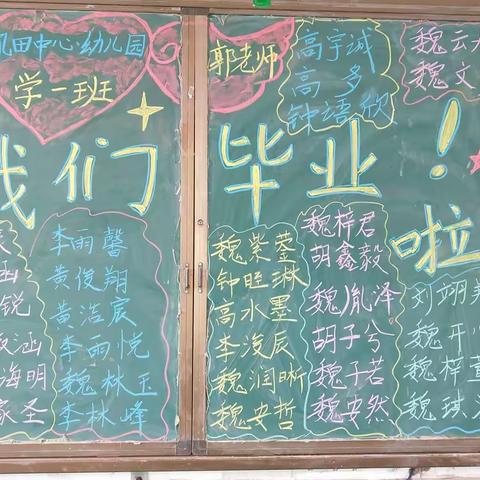 田中心幼儿园
学一班
我们毕业啦!
郭老师
高宇诚
高多
钟语欣
魏云
魏文
涵
锐
涵
海明
圣
李雨馨
黄俊翔
黄浩宸
李雨悦
魏林玉
李林峰
魏紫蓥
钟旺琳
高水墨
李浚辰
魏润晰
魏安哲
魏梓君
胡鑫毅
魏胤泽
胡子兮
魏子若
魏安然
刘翊
魏开
魏梓萱
魏琪